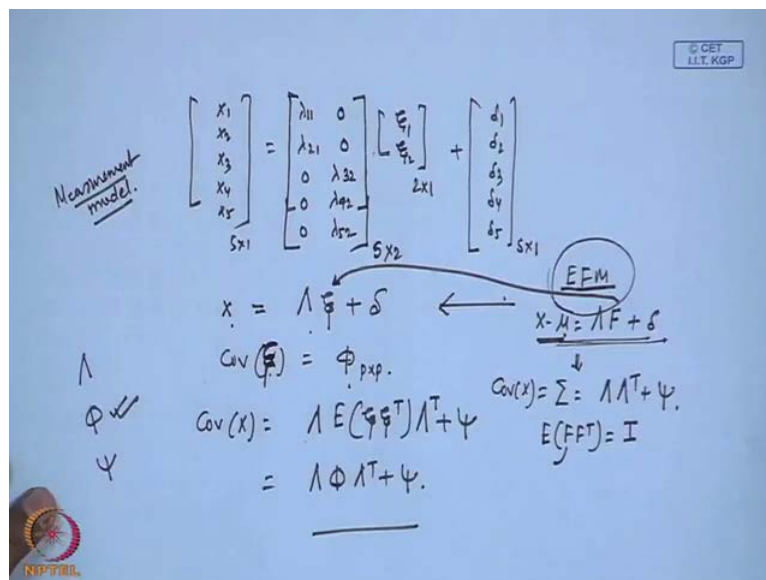 © CET
I.I.T. KGP
Measurement model.
[x1 x2 x3 x4 x5] 5x1 = [λ11 0
λ21 0
0 λ32
0 λ42
0 λ52] 5x2 [ξ1 ξ2] 2x1 + [δ1 δ2 δ3 δ4 δ5] 5x1
EFM
x = Λ ξ + δ ← x-μ = ΛF + δ
Cov(ξ) = Φ pxp.
Cov(x) = Σ = ΛΛᵀ + Ψ.
Λ
Φ ✓
Ψ
Cov(x) = Λ E(ξξᵀ)Λᵀ + Ψ
E(FFᵀ) = I
= Λ Φ Λᵀ + Ψ.
NPTEL